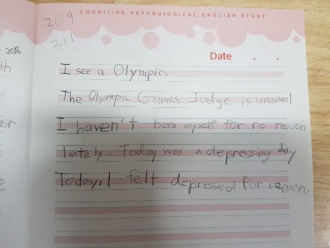 COGNITIVE PSYCHOLOGICAL ENGLISH STUDY
309
311
Date . .
I see a Olympics.
The Olympic Games Judge is unusual
I haven't been myself for no reason
lately. Today was a depressing day
Today, I felt depressed for reason.